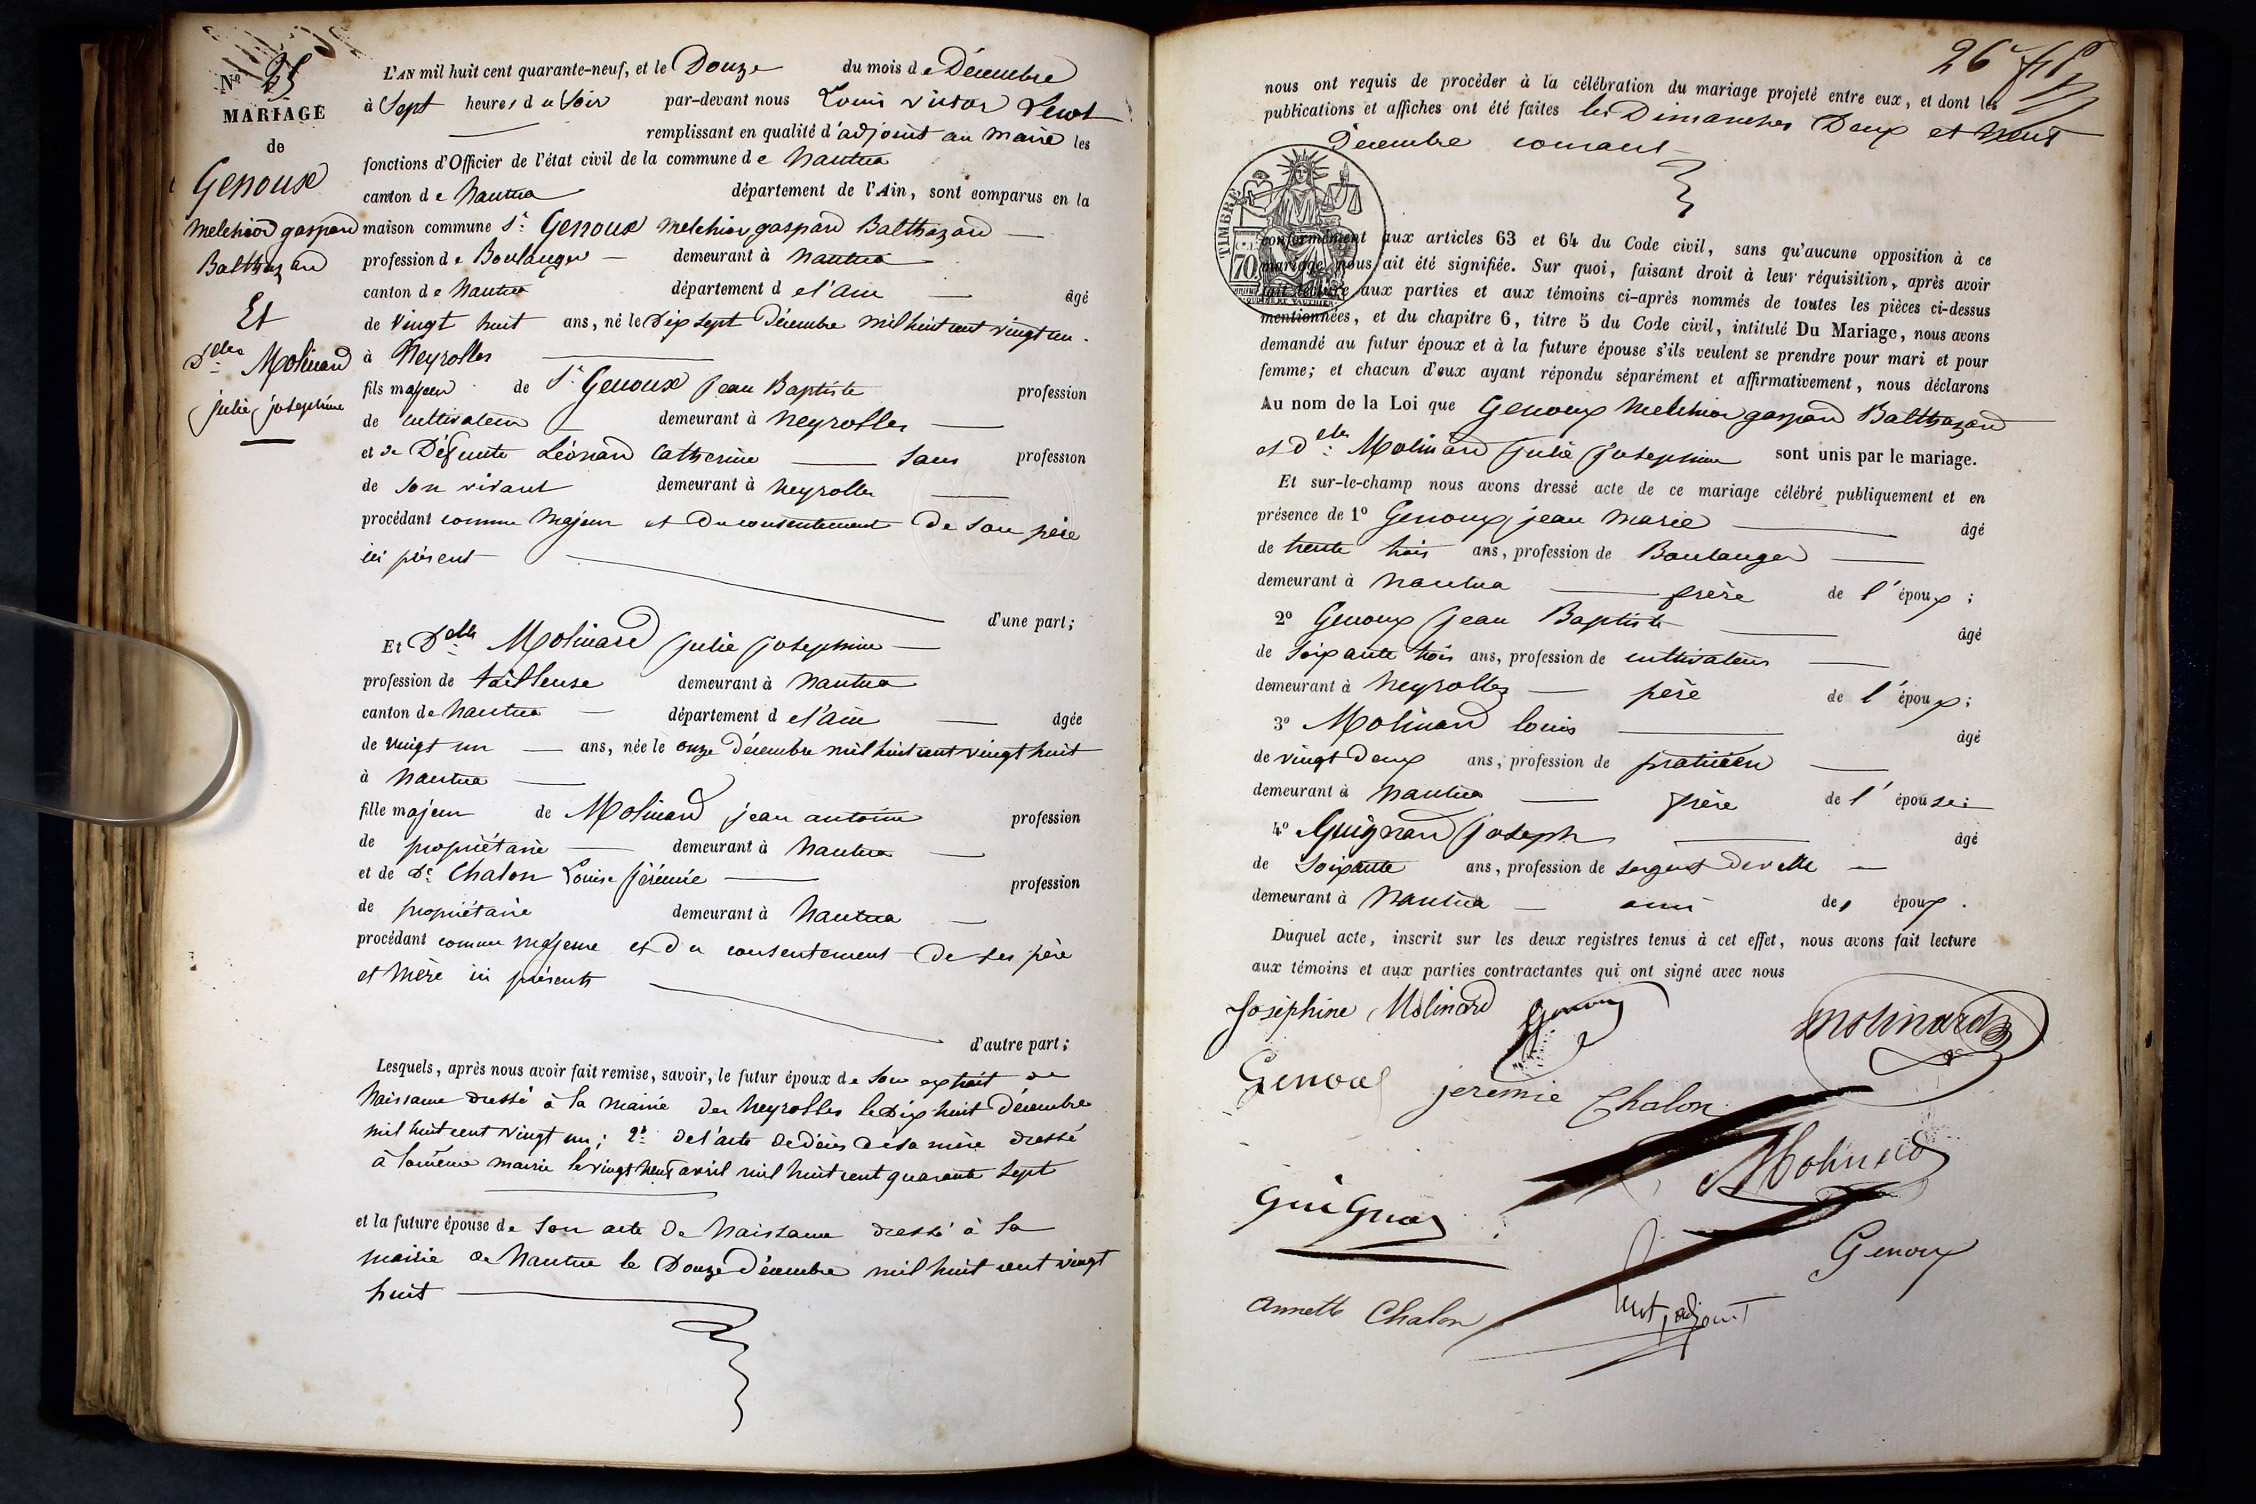 N° 25
MARIAGE
de
Genoux
Melchior gaspard
Balthazard
Et
Delle Molinard
julie josephine
L'AN mil huit cent quarante-neuf, et le Douze du mois de Décembre
à Sept heures du Soir par-devant nous Louis victor
remplissant en qualité d'adjoint au Maire les
fonctions d'Officier de l'état civil de la commune de Nantua
canton de Nantua département de l'Ain, sont comparus en la
maison commune Sr. Genoux Melchior gaspard Balthazard
profession de Boulanger demeurant à Nantua
canton de Nantua département de l'ain âgé
de Vingt huit ans, né le Dix sept Décembre mil huit cent vingt un.
à Neyrolles
fils majeur de Sr. Genoux jean Baptiste profession
de cultivateur demeurant à Neyrolles
et de Défunte Léonard Catherine Sans profession
de son vivant demeurant à Neyrolles
procédant comme Majeur et du consentement de son père
ici présent
d'une part;
Et Delle Molinard julie josephine
profession de tailleuse demeurant à Nantua
canton de Nantua département de l'ain âgée
de vingt un ans, née le onze Décembre mil huit cent vingt huit
à Nantua
fille majeur de Molinard jean antoine profession
de propriétaire demeurant à Nantua
et de De. Chalon Louise jérémie profession
de propriétaire demeurant à Nantua
procédant comme majeure et du consentement de ses père
et Mère ici présents
d'autre part;
Lesquels, après nous avoir fait remise, savoir, le futur époux de son extrait de
Naissance dressé à la Mairie des Neyrolles le Dix huit Décembre
mil huit cent vingt un; 2°. de l'acte de décès de sa mère dressé
à la même mairie le vingt neuf avril mil huit cent quarante sept
et la future épouse de son acte de Naissance dressé à la
mairie de Nantua le Douze Décembre mil huit cent vingt
huit
26
nous ont requis de procéder à la célébration du mariage projeté entre eux, et dont les
publications et affiches ont été faites les Dimanches Deux et Neuf
Décembre courant
TIMBRE
70
conformément aux articles 63 et 64 du Code civil, sans qu'aucune opposition à ce
mariage nous ait été signifiée. Sur quoi, faisant droit à leur réquisition, après avoir
fait lecture aux parties et aux témoins ci-après nommés de toutes les pièces ci-dessus
mentionnées, et du chapitre 6, titre 5 du Code civil, intitulé Du Mariage, nous avons
demandé au futur époux et à la future épouse s'ils veulent se prendre pour mari et pour
femme; et chacun d'eux ayant répondu séparément et affirmativement, nous déclarons
Au nom de la Loi que Genoux Melchior gaspard Balthazard
et delle. Molinard julie josephine sont unis par le mariage.
Et sur-le-champ nous avons dressé acte de ce mariage célébré publiquement et en
présence de 1° Genoux jean Marie âgé
de trente trois ans, profession de Boulanger
demeurant à Nantua frère de l'époux;
2° Genoux jean Baptiste âgé
de soixante trois ans, profession de cultivateur
demeurant à Neyrolles père de l'époux;
3° Molinard louis âgé
de vingt Deux ans, profession de praticien
demeurant à Nantua frère de l'épouse;
4° Guignard joseph âgé
de Soixante ans, profession de sergent de ville
demeurant à Nantua ami des époux.
Duquel acte, inscrit sur les deux registres tenus à cet effet, nous avons fait lecture
aux témoins et aux parties contractantes qui ont signé avec nous
Joséphine Molinard Genoux Molinard
Genoux jeremie Chalon
Molinard
Guignard
Genoux
annette Chalon adjoint